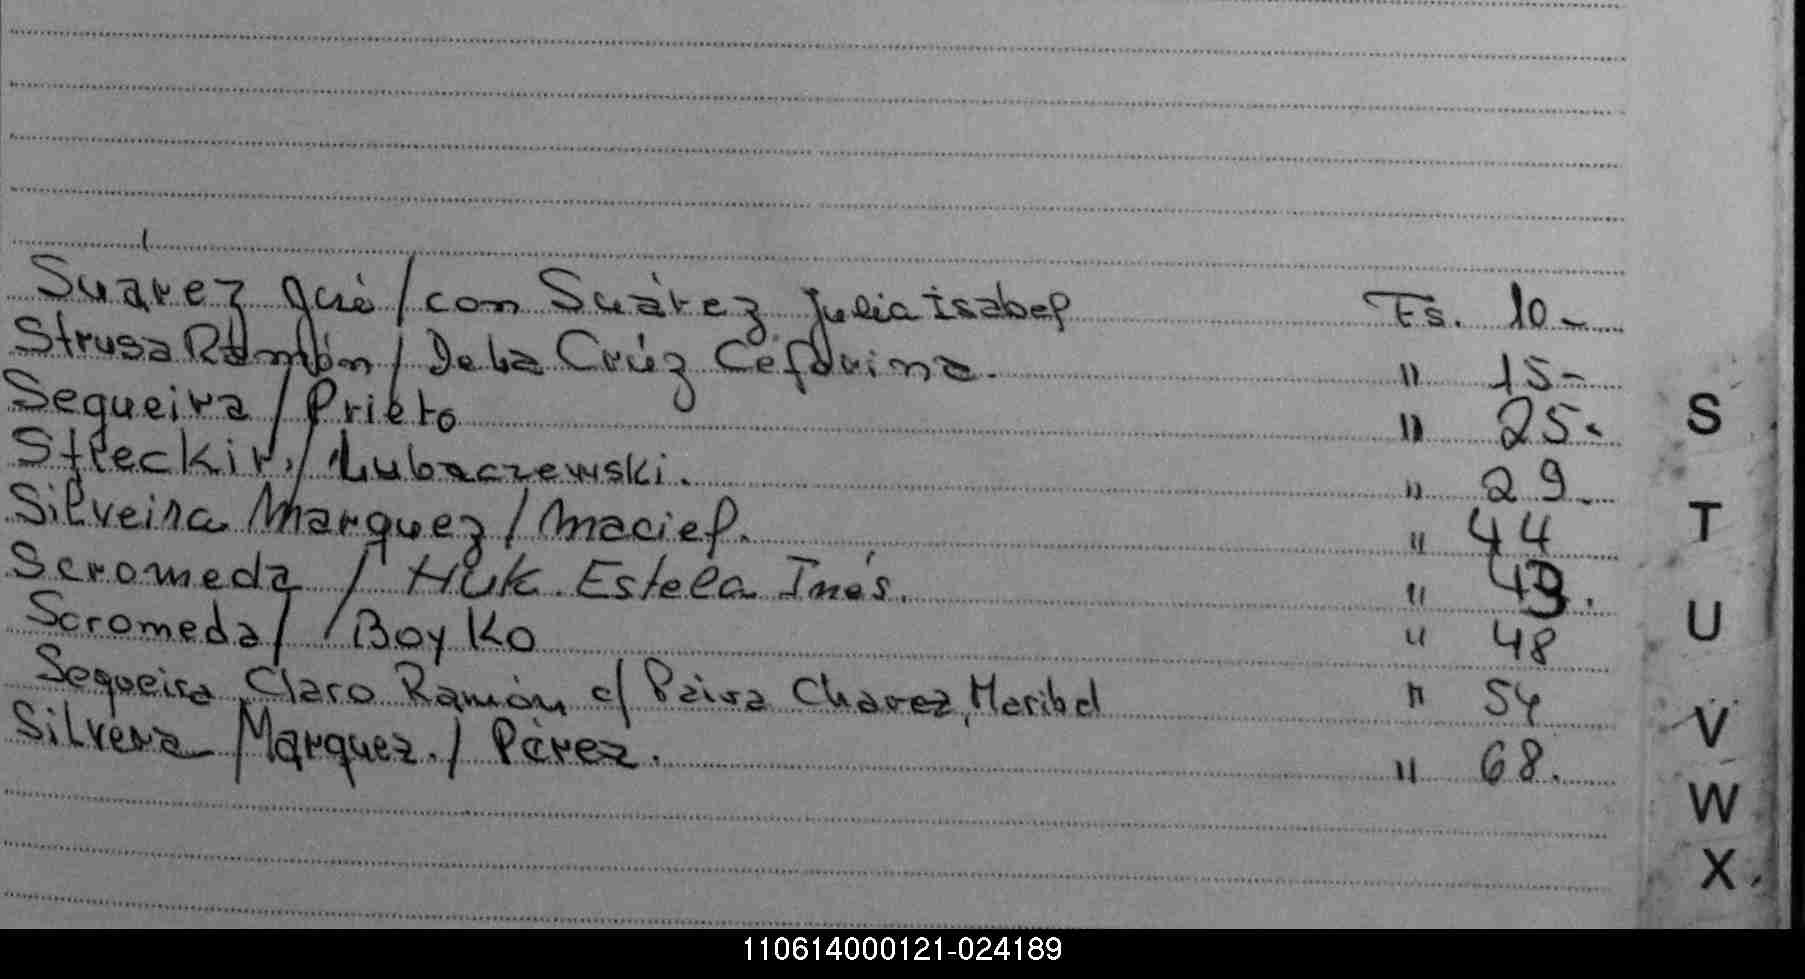 Suárez José / con Suárez Julia Isabel Fs. 10-
Strusa Ramón / De La Crúz Ceferina. " 15-
Sequeira / Prieto " 25-
Stleckir, / Lubaczewski. " 29-
Silveira Marquez / Maciel. " 44
Scromeda / Huk Estela Inés. " 43.
Scromeda / Boyko " 48
Sequeira Claro Ramón c/ Paiva Chavez, Maribel " 54
Silvera Marquez. / Pérez. " 68.
S
T
U
V
W
X
110614000121-024189